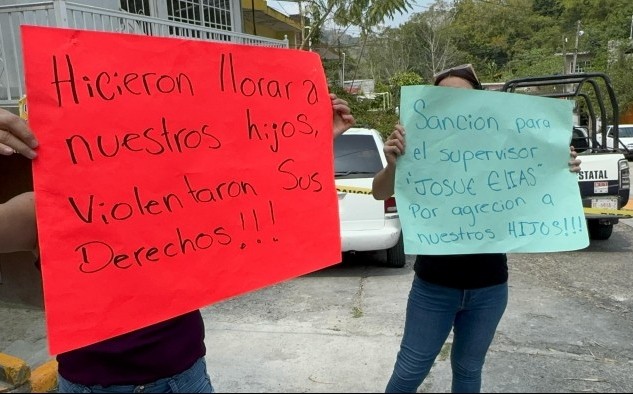 Hicieron llorar a
nuestros hijos,
Violentaron Sus
Derechos!!!
Sancion para
el supervisor
"JOSUE ElIAS"
Por agrecion a
nuestros HIJOS!!!
ESTATAL